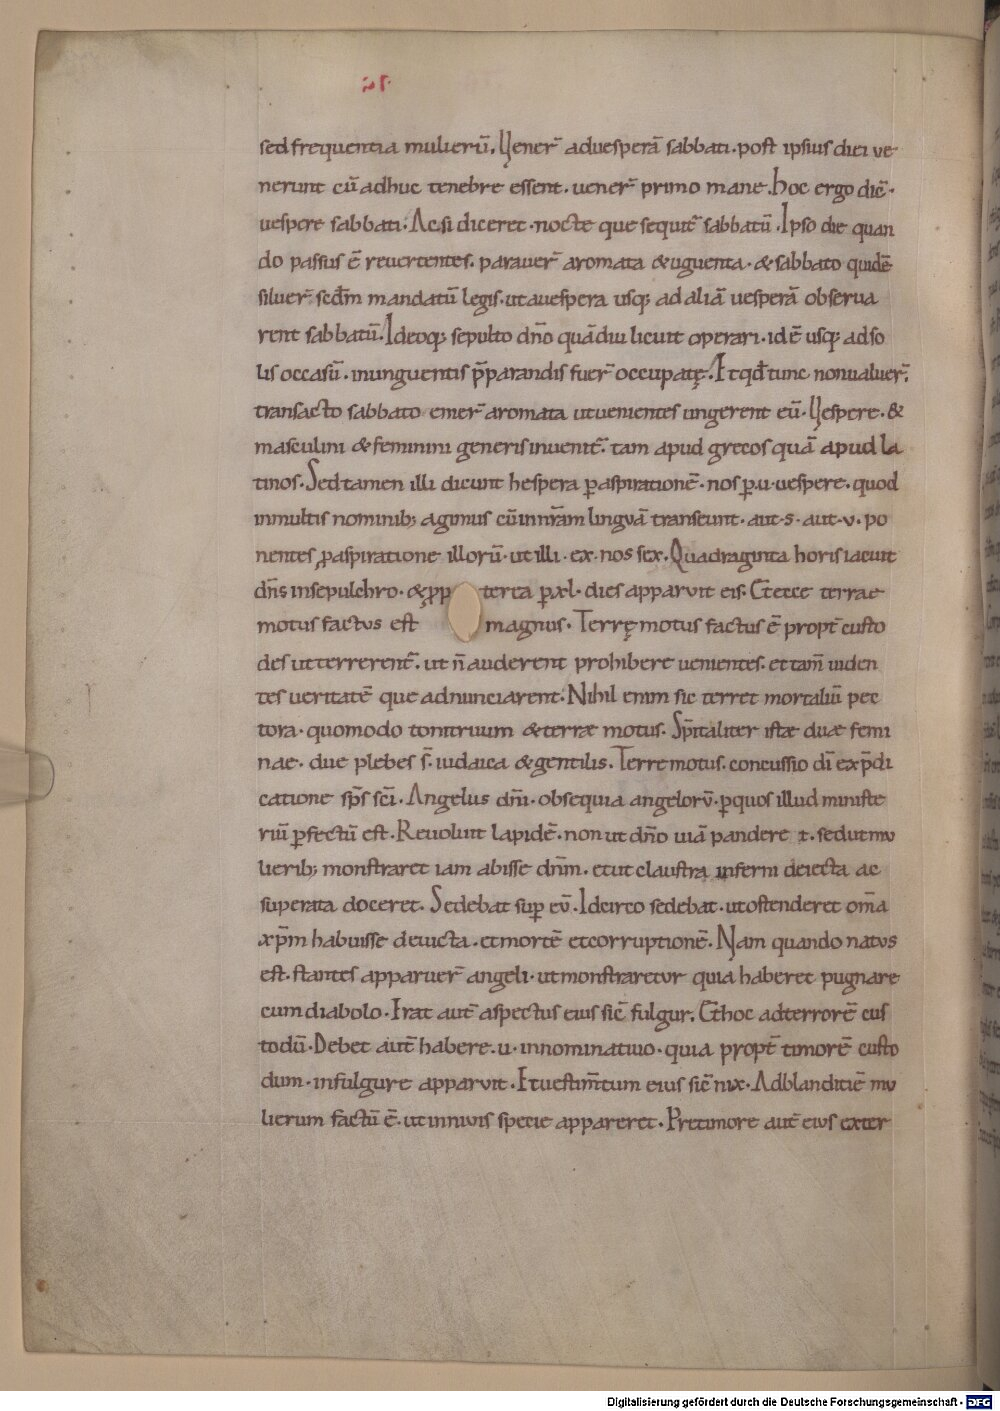 sed frequentia mulierū. Vener̄ aduesperā sabbati. post ipsius diei ve
nerunt cū adhuc tenebre essent. uener̄ primo mane. hoc ergo dic̄.
uespere sabbati. Ac si diceret. nocte que sequit̄ sabbatū. Ipso die quan
do passus ē reuertentes. parauer̄ aromata & uguenta. & sabbato quidē
siluer̄ scdm̄ mandatū legis. ut auespera usq; ad aliā uesperā obserua
rent sabbatū. Ideoq; sepulto dn̄o quādiu licuit operari. id ē usq; ad so
lis occasū. inunguentis p̄parandis fuer̄ occupatę. Et qđ tunc non ualuer̄.
transacto sabbato emer̄ aromata ut uenientes ungerent eū. Vespere. &
masculini & feminini generis inuenit̄. tam apud grecos quā apud la
tinos. Sed tamen illi dicunt hespera ꝑ aspirationē. nos ꝑ .u. uespere. quod
in multis nominib; agimus cū in nr̄am linguā transeunt. aut .s. aut .v. po
nentes ꝓ aspiratione illorū. ut illi .ex. nos sex. Quadraginta horis iacuit
dn̄s in sepulchro. & ꝓp terea ꝑ xl. dies apparuit eis. Et ecce terrae
motus factus est magnus. Terrę motus factus ē propt̄ custo
des ut terrerent̄. ut n̄ auderent prohibere uenientes. et tam̄ uiden
tes ueritatē que adnunciarent. Nihil enim sic terret mortaliū pec
tora. quomodo tonitruum & terræ motus. Sp̄italiter istæ duæ femi
nae. due plebes s̄. iudaica & gentilis. Terre motus. concussio dī ex p̄di
catione sp̄s sc̄i. Angelus dn̄i. obsequia angelorū. ꝑ quos illud ministe
riū ꝑfectū est. Reuoluit lapidē. non ut dn̄o uiā pandere t. sed ut mu
lierib; monstraret iam abisse dnm̄. et ut claustra inferni deiecta ac
superata doceret. Sedebat suꝑ eū. Idcirco sedebat. ut ostenderet om̄a
xp̄m habuisse deuicta. et mortē et corruptionē. Nam quando natus
est. stantes apparuer̄ angeli. ut monstraretur quia haberet pugnare
cum diabolo. Erat aut̄ aspectus eius sic̄ fulgur. Et hoc ad terrorē cus
todū. Debet aut̄ habere .u. in nominatiuo. quia propt̄ timorē custo
dum. in fulgure apparuit. Et uestim̄tum eius sic̄ nix. Ad blanditiē mu
lierum factū ē. ut in niuis specie appareret. Pre timore aut̄ eius exter